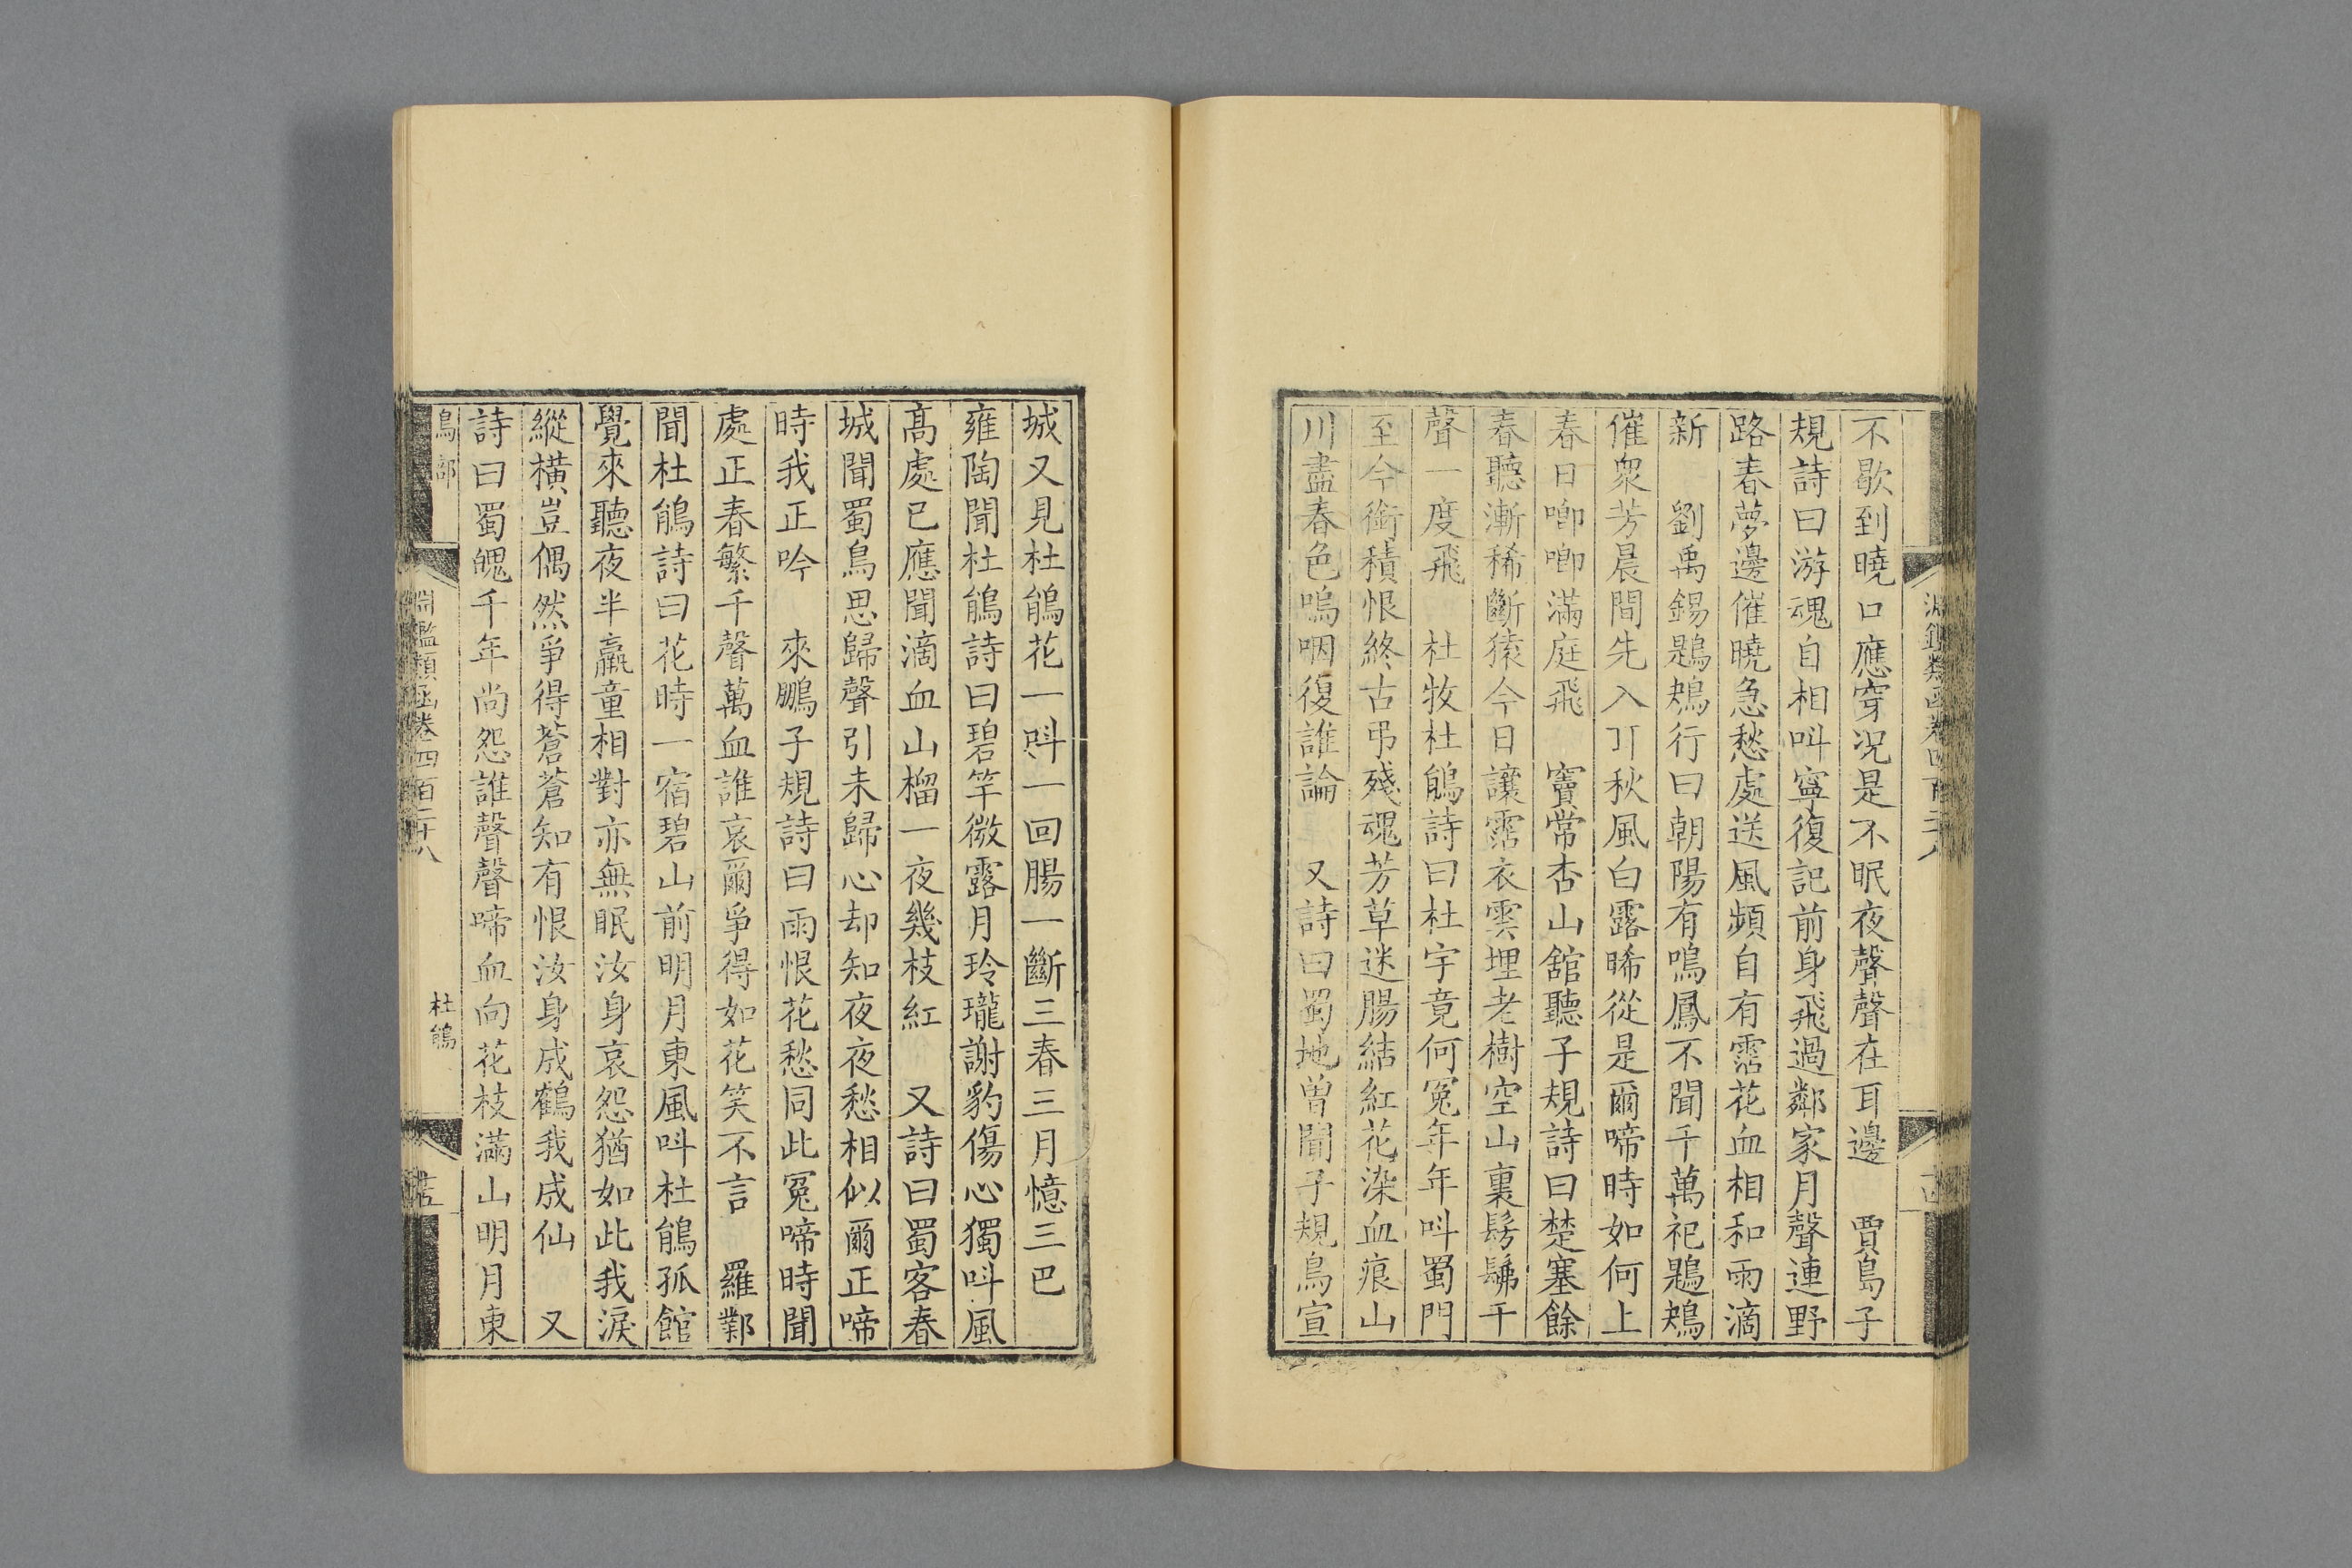 不歇到曉口應穿況是不眠夜聲聲在耳邊　賈島子
規詩曰游魂自相叫寧復記前身飛過鄰家月聲連野
路春夢邊催曉急愁處送風頻自有霑花血相和雨滴
新　劉禹錫鶗鴂行曰朝陽有鳴鳳不聞千萬祀鶗鴂
催衆芳晨間先入耳秋風白露晞從是爾啼時如何上
春日唧唧滿庭飛　竇常杏山舘聽子規詩曰楚塞餘
春聽漸稀斷猿今日讓霑衣雲埋老樹空山裏髣髴千
聲一度飛　杜牧杜鵑詩曰杜宇竟何冤年年呌蜀門
至今銜積恨終古弔殘魂芳草迷腸結紅花染血痕山
川盡春色嗚咽復誰論　又詩曰蜀地曽聞子規鳥宣
城又見杜鵑花一呌一回腸一斷三春三月憶三巴
雍陶聞杜鵑詩曰碧竿微露月玲瓏謝豹傷心獨呌風
髙處已應聞滴血山榴一夜幾枝紅　又詩曰蜀客春
城聞蜀鳥思歸聲引未歸心却知夜夜愁相似爾正啼
時我正吟　來鵬子規詩曰雨恨花愁同此冤啼時聞
處正春繁千聲萬血誰哀爾爭得如花笑不言　羅鄴
聞杜鵑詩曰花時一宿碧山前明月東風呌杜鵑孤館
覺來聽夜半羸童相對亦無眠汝身哀怨猶如此我淚
縱橫豈偶然爭得蒼蒼知有恨汝身成鶴我成仙　又
詩曰蜀魄千年尚怨誰聲聲啼血向花枝滿山明月東
鳥部
淵鑑類函卷四百二十八
杜鵑